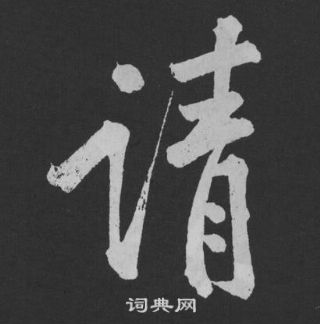 请
词典网